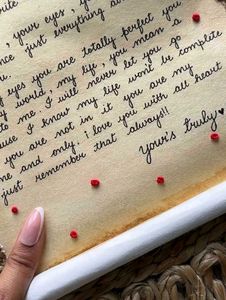 , your eyes, your
just everything a
eyes you are totally perfect you
world, my life, you mean a
to me. I will never let you go
I know my life won't be complete
you are not in it you are my
me and only. i love you with all heart
just remember that always!!
your's truly